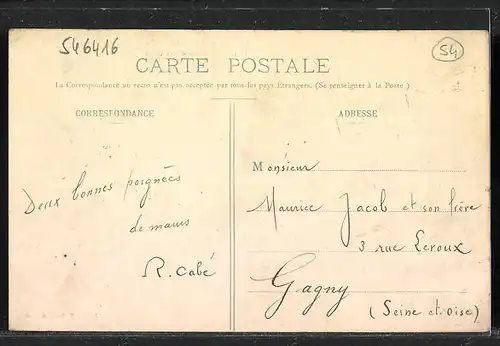 546416
54
CARTE POSTALE
La Correspondance au recto n'est pas acceptée par tous les pays Étrangers. (Se renseigner à la Poste)
CORRESPONDANCE
ADRESSE
Deux bonnes poignées
de mains
R. Cabé
Monsieur
Maurice Jacob et son frère
3 rue Leroux
Gagny
(Seine et oise)